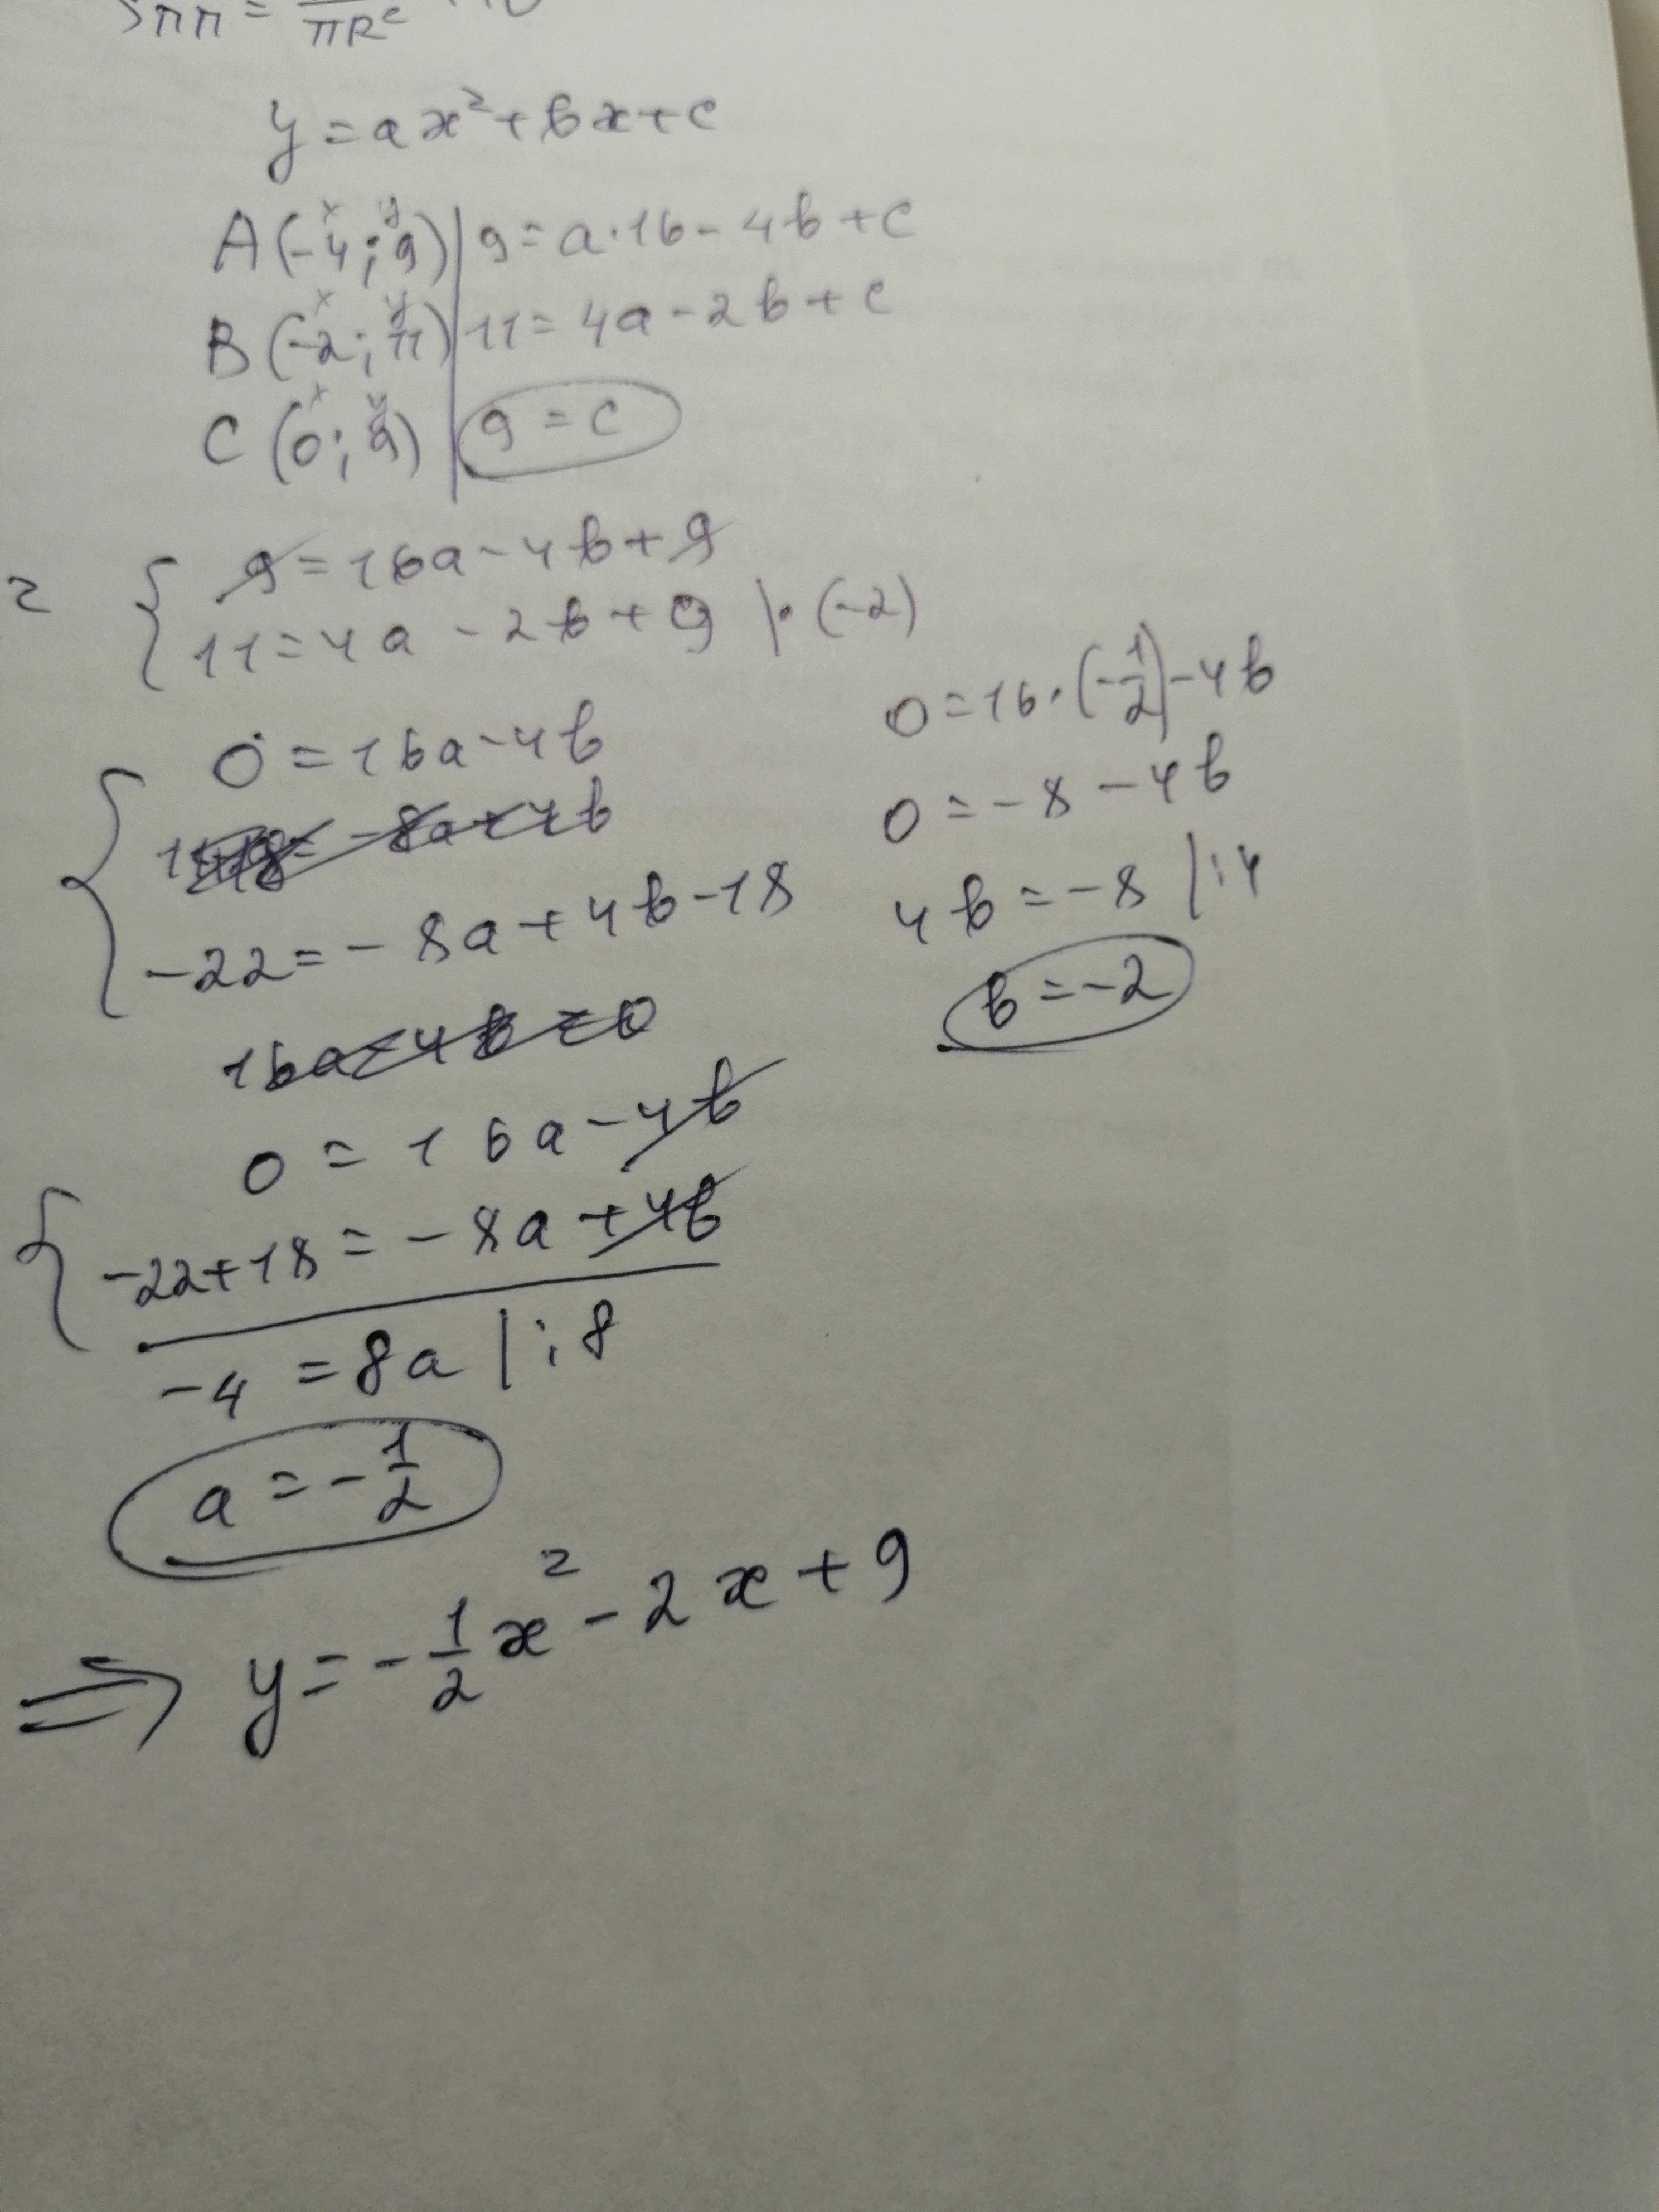 Sпп = / πR²
y = ax² + bx + c
x y
A(-4; 9) | 9 = a·16 - 4b + c
x y
B(-2; 11) | 11 = 4a - 2b + c
x y
C(0; 9) | 9 = c
2 { 9 = 16a - 4b + 9
11 = 4a - 2b + 9 |·(-2)
{ 0 = 16a - 4b
= -8a + 4b
-22 = -8a + 4b - 18
16a - 4b = 0
{ 0 = 16a - 4b
-22 + 18 = -8a + 4b
-4 = 8a | : 8
a = -1/2
0 = 16·(-1/2) - 4b
0 = -8 - 4b
4b = -8 | : 4
b = -2
⇒ y = -1/2 x² - 2x + 9